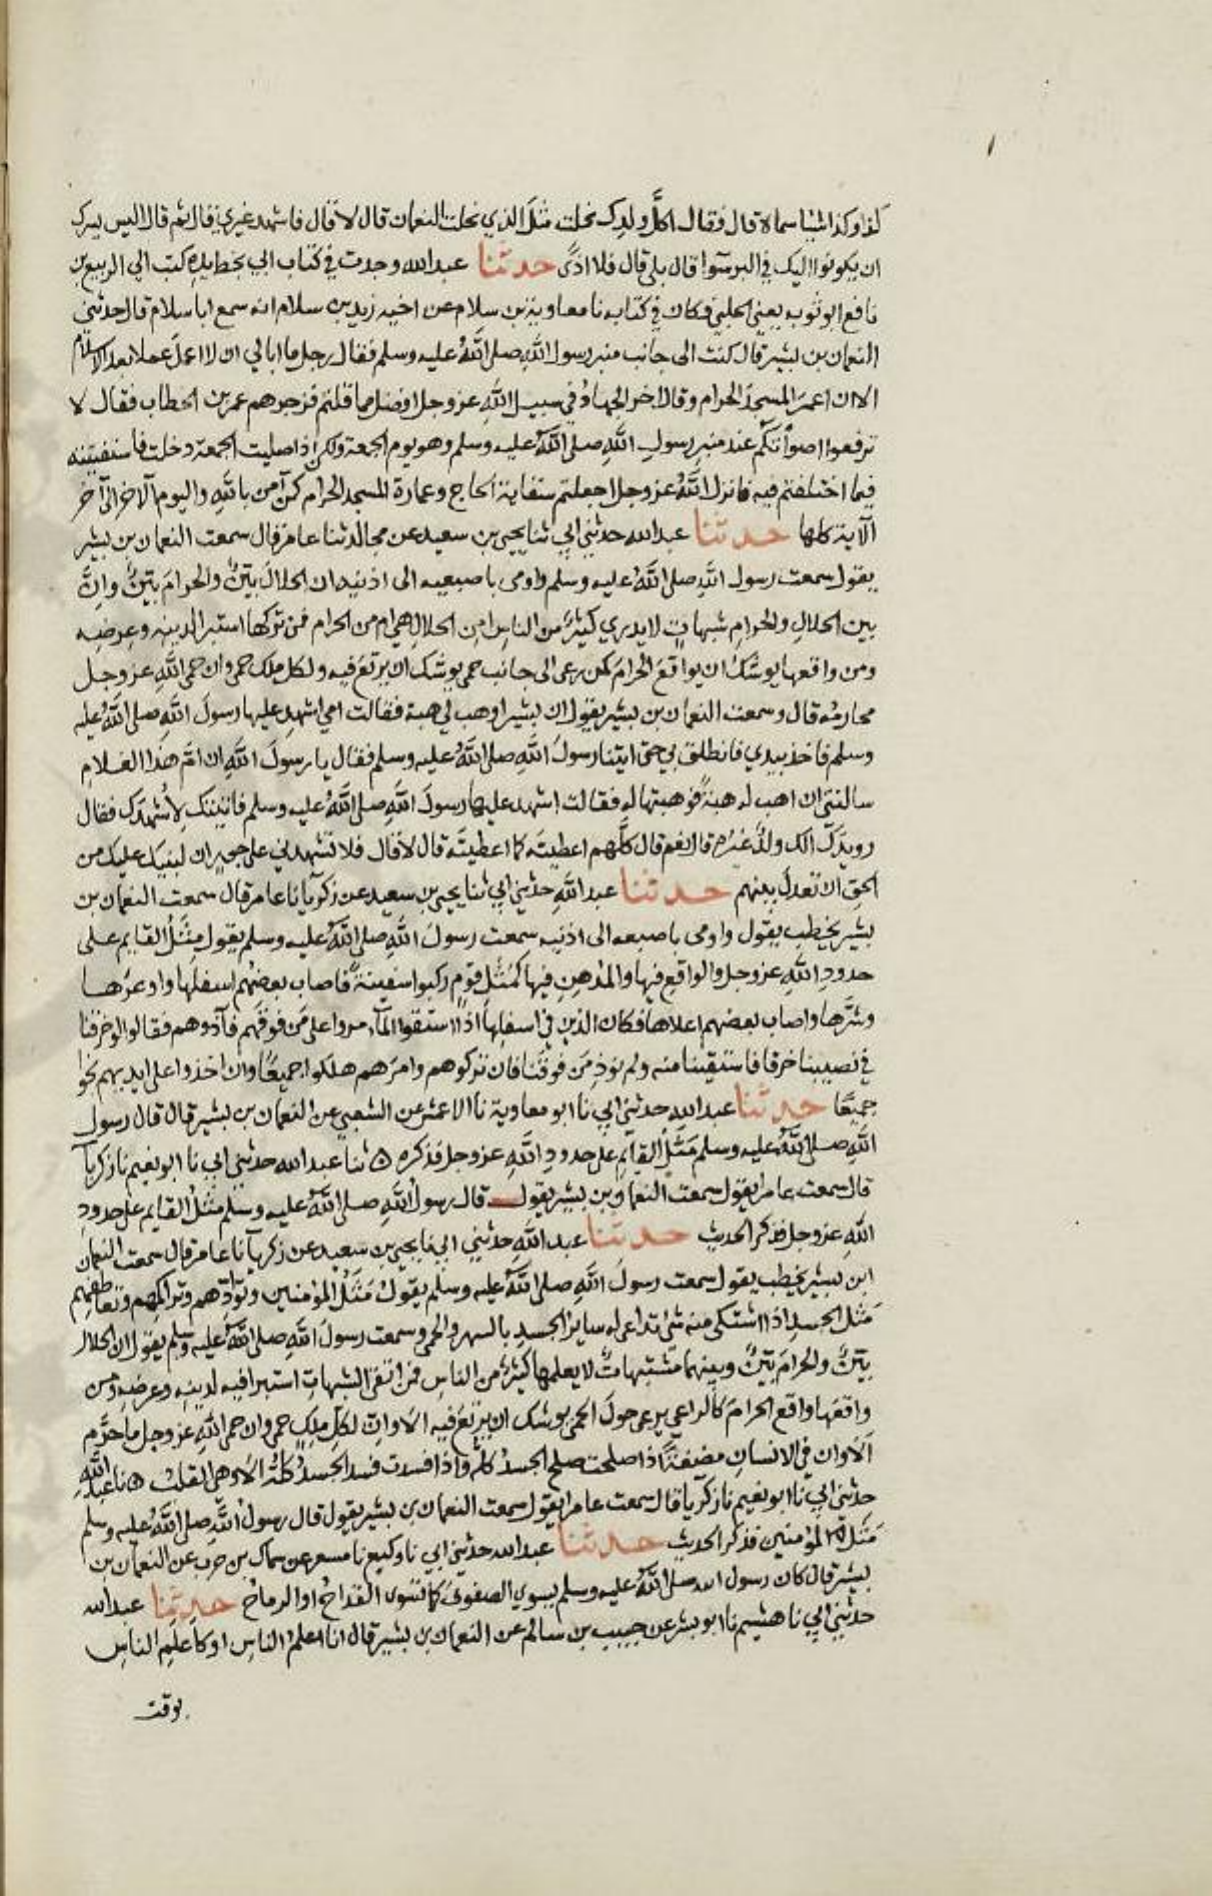 كذا وكذا شيئا سماه قال فقال اكلّ ولدك نحلت مثل الذي نحلت النعمان قال لا قال فاشهد غيري قال ثم قال اليس يسرك
ان يكونوا اليك في البر سوا قال بلى قال فلا اذًى حدثنا عبدالله وجدت في كتاب ابي بخط يده كتب الي الربيع بن
نافع ابو توبه يعني الحلبي فكان في كتابه نا معاوية بن سلام عن اخيه زيد بن سلام انه سمع ابا سلام قال حدثني
النعمان بن بشير قال كنت الى جانب منبر رسول الله صلى الله عليه وسلم فقال رجل ما ابالي ان لا اعمل عملا بعد الاسلام
الا ان اعمر المسجد الحرام وقال اخر الجهاد في سبيل الله عز وجل افضل مما قلتم فزجرهم عمر بن الخطاب فقال لا
ترفعوا اصواتكم عند منبر رسول الله صلى الله عليه وسلم وهو يوم الجمعة ولكن اذا صليت الجمعة دخلت فاستفتيته
فيما اختلفتم فيه فانزل الله عز وجل اجعلتم سقاية الحاج وعمارة المسجد الحرام كمن آمن بالله واليوم الآخر الى آخر
الآية كلها حدثنا عبدالله حدثني ابي ثنا يحيى بن سعيد عن مجالد ثنا عامر قال سمعت النعمان بن بشير
يقول سمعت رسول الله صلى الله عليه وسلم واومى باصبعيه الى اذنيه ان الحلال بيّنٌ والحرام بيّنٌ وانّ
بين الحلال والحرام شبهات لا يدري كثير من الناس امن الحلال هي ام من الحرام فمن تركها استبرا لدينه وعرضه
ومن واقعها يوشك ان يواقع الحرام كمن رعى الى جانب حمى يوشك ان يرتع فيه ولكل ملك حمى وان حمى الله عز وجل
محارمه قال وسمعت النعمان بن بشير يقول ان بشيرا وهب لي هبة فقالت امي اشهد عليها رسول الله صلى الله عليه
وسلم فاخذ بيدي فانطلق بي حتى اتينا رسول الله صلى الله عليه وسلم فقال يا رسول الله ان امّ هذا الغلام
سالتني ان اهب له هبة فوهبتها له فقالت اشهد عليها رسول الله صلى الله عليه وسلم فاتيتك لأشهدك فقال
رويدك الك ولد غيره قال نعم قال كلّهم اعطيته كما اعطيته قال لا قال فلا تشهدني على جور ان لبنيك عليك من
الحق ان تعدل بينهم حدثنا عبدالله حدثني ابي ثنا يحيى بن سعيد عن زكريا نا عامر قال سمعت النعمان بن
بشير يخطب يقول واومى باصبعه الى اذنيه سمعت رسول الله صلى الله عليه وسلم يقول مثل القايم على
حدود الله عز وجل والواقع فيها والمدهن فيها كمثل قوم ركبوا سفينة فاصاب بعضهم اسفلها واوعرها
وشرّها واصاب بعضهم اعلاها فكان الذين في اسفلها اذا استقوا المآ مروا على من فوقهم فآذوهم فقالوا لو خرقنا
في نصيبنا خرقا فاستقينا منه ولم نوذ من فوقنا فان تركوهم وامرهم هلكوا جميعًا وان اخذوا على ايديهم نجوا
جميعًا حدثنا عبدالله حدثني ابي نا ابو معاوية نا الاعمش عن الشعبي عن النعمان بن بشير قال قال رسول
الله صلى الله عليه وسلم مثل القايم على حدود الله عز وجل فذكره ه ثنا عبدالله حدثني ابي نا ابو نعيم نا زكريآ
قال سمعت عامرا يقول سمعت النعمان بن بشير يقول قال رسول الله صلى الله عليه وسلم مثل القايم على حدود
الله عز وجل فذكر الحديث حدثنا عبدالله حدثني ابي نا يحيى بن سعيد عن زكريآ نا عامر قال سمعت النعمان
ابن بشير يخطب يقول سمعت رسول الله صلى الله عليه وسلم يقول مثل المؤمنين وتوادّهم وتراحمهم وتعاطفهم
مثل الجسد اذا اشتكى منه شئ تداعى له ساير الجسد بالسهر والحمى وسمعت رسول الله صلى الله عليه وسلم يقول ان الحلال
بيّنٌ والحرام بيّنٌ وبينهما مشتبهات لا يعلمها كثير من الناس فمن اتقى الشبهات استبرا فيه لدينه وعرضه ومن
واقعها واقع الحرام كالراعي يرعى حول الحمى يوشك ان يرتع فيه الا وان لكل ملك حمى وان حمى الله عز وجل ما حرّم
الا وان في الانسان مضغة اذا صلحت صلح الجسد كله واذا فسدت فسد الجسد كله الا وهي القلب ه نا عبدالله
حدثني ابي نا ابو نعيم نا زكريا قال سمعت عامرا يقول سمعت النعمان بن بشير يقول قال رسول الله صلى الله عليه وسلم
مثل المؤمنين فذكر الحديث حدثنا عبدالله حدثني ابي نا وكيع نا مسعر عن سماك بن حرب عن النعمان بن
بشير قال كان رسول الله صلى الله عليه وسلم يسوي الصفوف كما تسوى القداح او الرماح حدثنا عبدالله
حدثني ابي نا هشيم نا ابو بشر عن حبيب بن سالم عن النعمان بن بشير قال انا اعلم الناس او كاعلم الناس
بوقت